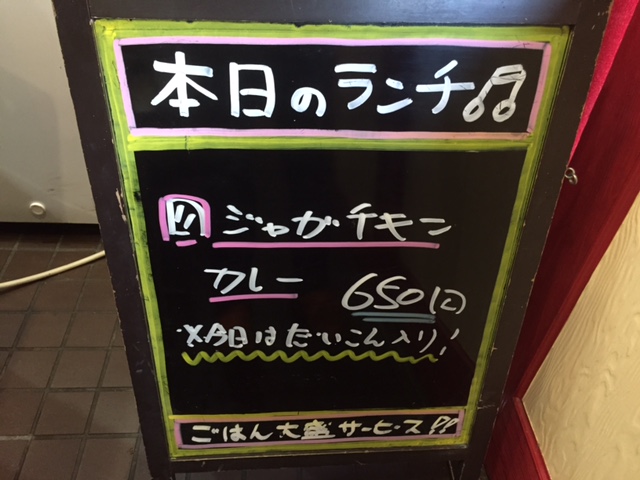 本日のランチ♫
ジャガチキン
カレー 650円
※今日はだいこん入り!
ごはん大盛サービス!!